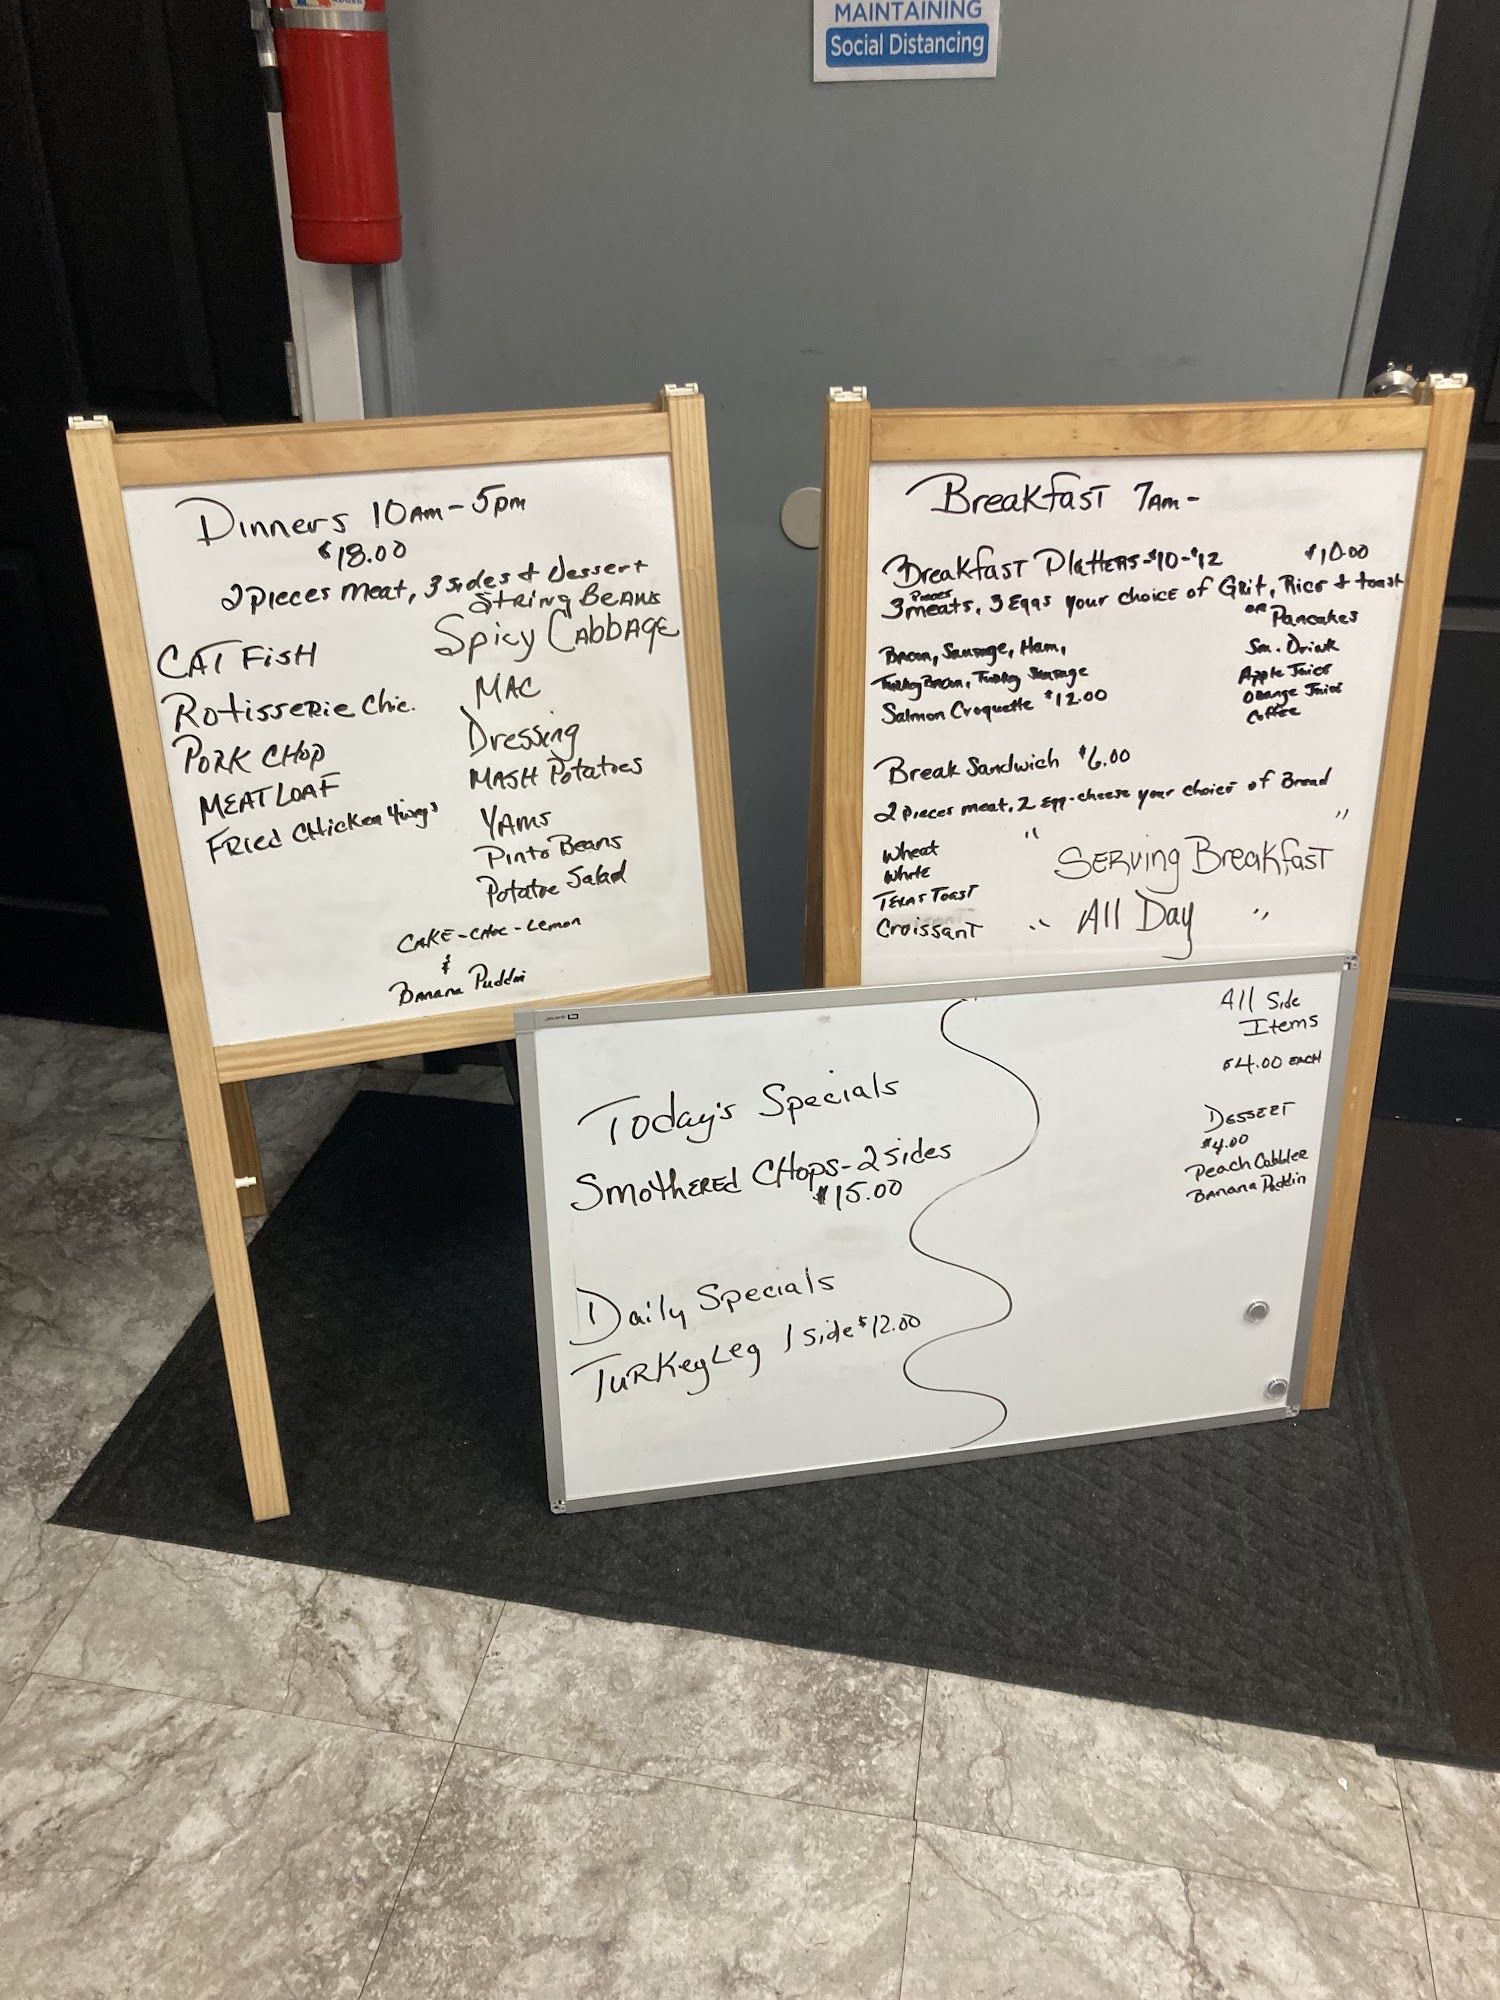 MAINTAINING
Social Distancing
Dinners 10AM-5pm
$18.00
2 pieces meat, 3 sides & dessert
CAT FISH
Rotisserie Chic.
PORK CHOP
MEATLOAF
FRied CHicken 4wings
STRING BEANS
Spicy CABBAGE
MAC
Dressing
MASH Potatoes
YAMS
Pinto Beans
Potatoe Salad
CAKE-CHOC-Lemon
&
Banana Puddin
Breakfast 7AM-
Breakfast Platters-$10-$12 $10.00
Pieces
3 meats, 3 Eggs your choice of Grit, Rice & toast
OR Pancakes
Bacon, Sausage, Ham,
Turkey Bacon, Turkey Sausage
Salmon Croquette $12.00
Sm. Drink
Apple Juice
Orange Juice
Coffee
Break Sandwich $6.00
2 pieces meat, 2 Egg-cheese your choice of Bread
Wheat
White
TEXAS TOAST
CroissanT
" SERVING BreakfasT "
" All Day "
Today's Specials
SmotheRed CHops-2 sides
$15.00
Daily Specials
TuRKey Leg 1 side $12.00
All Side
Items
$4.00 EACH
DESSERT
$4.00
Peach Cobbler
BANANA Puddin